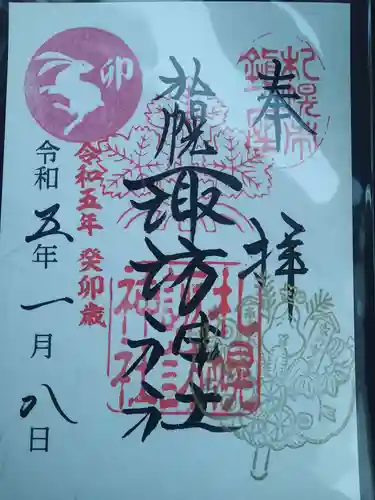 奉拝
札幌市
鎮座
札幌諏訪神社
札幌
諏訪
神社
卯
令和五年 癸卯歳
令和五年一月八日